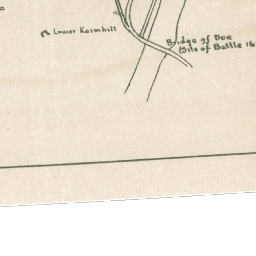 Lower Kaimhill
Bridge of Dee
(Site of Battle 16